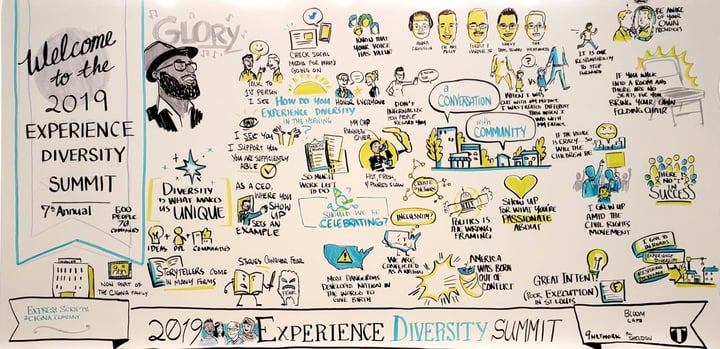 Welcome
to the
2019
EXPERIENCE
DIVERSITY
SUMMIT
7th Annual
500
PEOPLE
70
COMPANIES
EXPRESS SCRIPTS
A CIGNA COMPANY
NOW PART OF
THE CIGNA FAMILY
GLORY
TALK TO
1ST PERSON
I SEE
CHECK SOCIAL
MEDIA FOR WHAT'S
GOING ON
KNOW THAT
YOUR VOICE
HAS VALUE
HONOR EVERYONE
HOW DO YOU
EXPERIENCE DIVERSITY
IN THE MORNING?
DON'T
INTERNALIZE
PEOPLE
I SEE YOU
I SUPPORT YOU
YOU ARE SUFFICIENTLY
ABLE
SO MUCH
WORK LEFT
TO DO
MY CUP
RUNNETH
OVER
HOT, FRESH,
& POURED SLOW
DIVERSITY
IS WHAT MAKES
US UNIQUE
IDEAS
COMMUNITIES
AS A CEO,
WHERE YOU
SHOW
UP
SETS AN
EXAMPLE
SHOULD WE BE
CELEBRATING?
STORYTELLERS COME
IN MANY FORMS
STORIES CONQUER FEAR
FEAR
MOST DANGEROUS
DEVELOPED NATION IN
THE WORLD TO
GIVE BIRTH
WE ARE
CONFLICTED
AS A NATION
INCLUSIVITY
CREATE
NETWORK
a
CONVERSATION
with
COMMUNITY
POLITICS IS
THE WRONG
FRAMING
AMERICA
WAS BORN
OUT OF
CONFLICT
SHOW UP
FOR WHAT YOU'RE
PASSIONATE
ABOUT
WHEN I WAS
OUT WITH MY FATHER
I WAS TREATED DIFFERENT
THAN WHEN I
WAS WITH
MY MOTHER
IT IS OUR
RESPONSIBILITY
TO STEP
FORWARD
BE AWARE
OF YOUR
OWN
PREJUDICES
IF YOU WALK
INTO A ROOM AND
THERE ARE NO
SEATS FOR YOU
BRING YOUR OWN
FOLDING CHAIR
IF THE VILLAGE
IS CRAZY, SO
WILL THE
CHILDREN BE
I GREW UP
AMID THE
CIVIL RIGHTS
MOVEMENT
THERE IS
NO "I"
IN
SUCCESS
GREAT INTENT
(POOR EXECUTION)
IN ST LOUIS
BLOOM
CAFE
9 NETWORK
SHELDON
2019 EXPERIENCE DIVERSITY SUMMIT